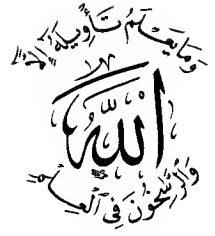 وَمَا يَعْلَمُ تَأْوِيلَهُ إِلَّا
اللّٰه
وَالرَّاسِخُونَ فِي الْعِلْمِ